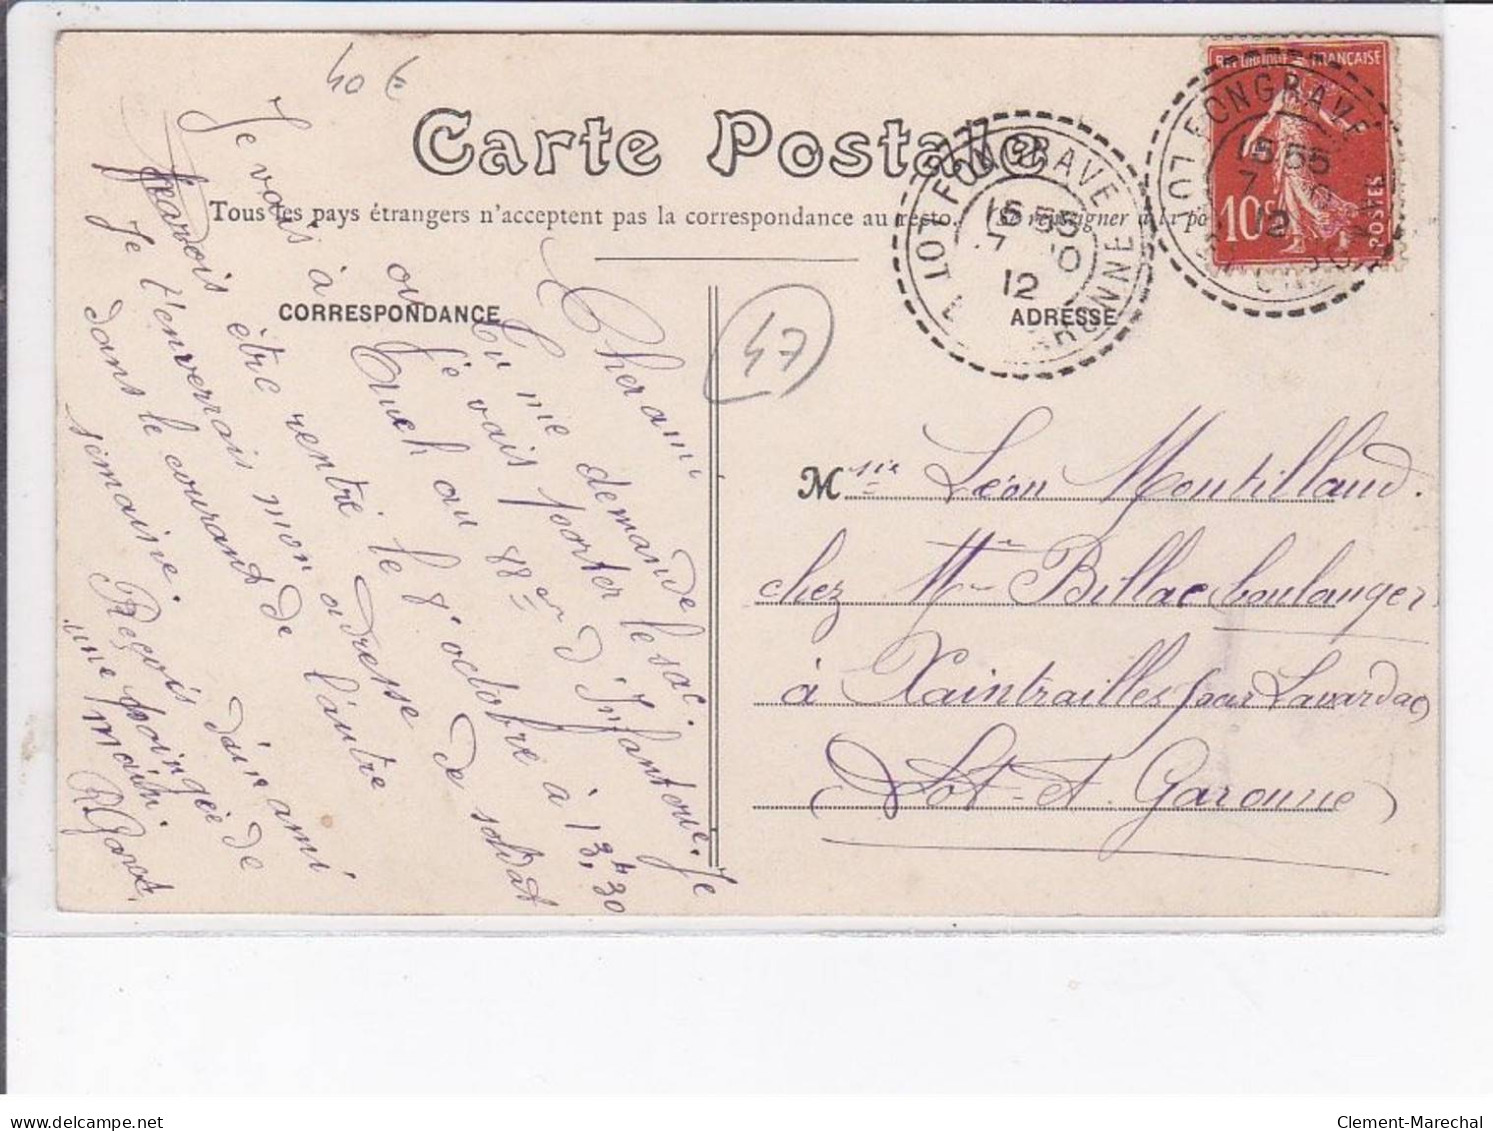 40 €
Carte Postale
Tous les pays étrangers n'acceptent pas la correspondance au recto. (Se renseigner à la po
CORRESPONDANCE
ADRESSE
47
LOT FONGRAVE
15 55
7 10
12
LOT ET GARONNE
REPUBLIQUE FRANÇAISE
10c
POSTES
LOT FONGRAVE
15 55
7
12
Cher ami
Tu me demande le sac.
où je vais porter le
88em d'Infanterie. Je
vais à Auch au 8 octobre à 13h,30
être rentré le
de soldat
Je t'enverrais mon adresse
dans le courant de l'autre
semaine.
Reçois d'un ami
une poingée de
main.
Msie Léon Montillaud.
chez Mr Billac boulanger
à Xaintrailles par Lavardac
(Lot-et-Garonne)
delcampe.net
Clement-Marechal